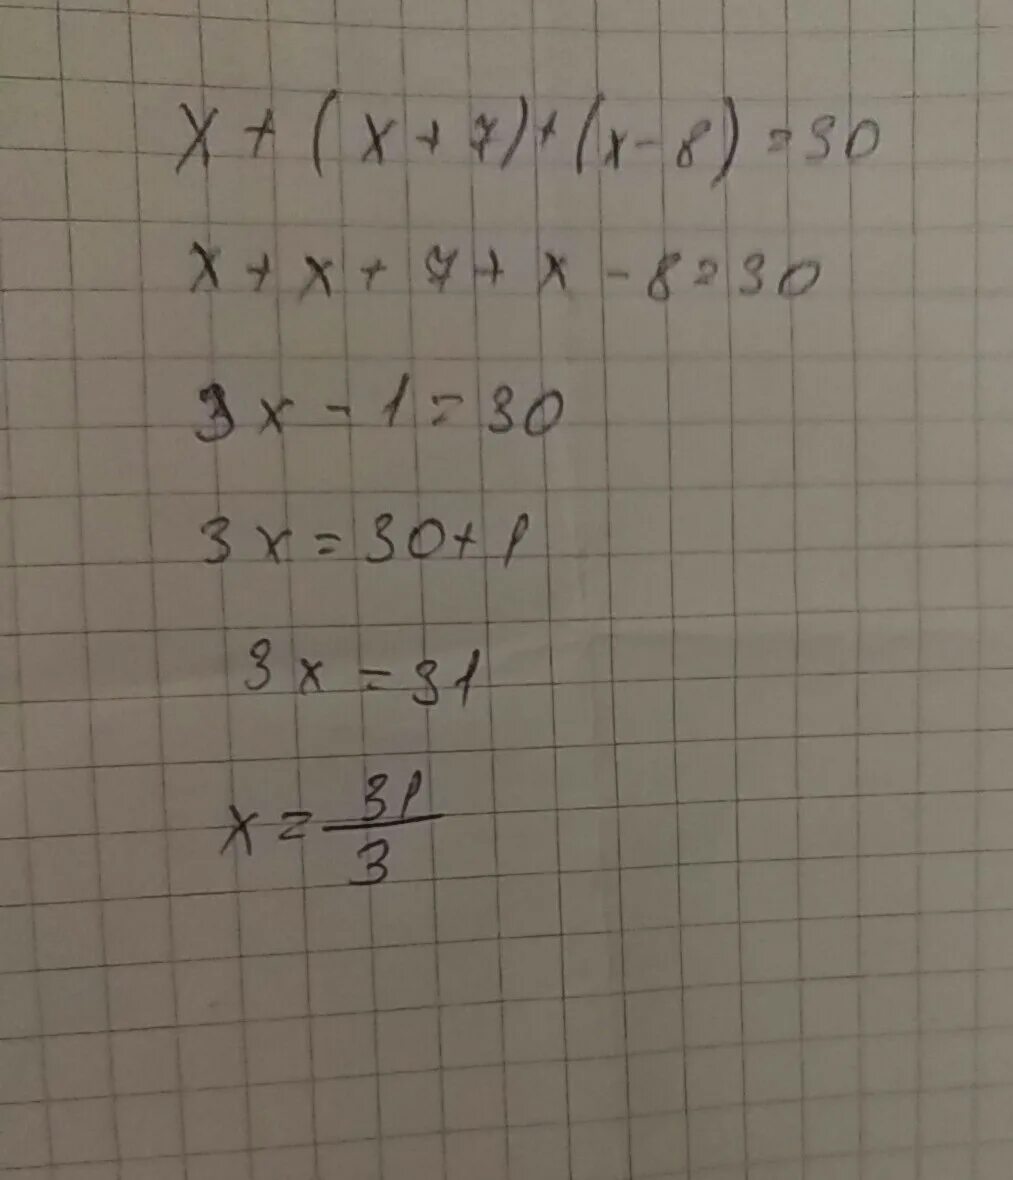 x + (x + 7) + (x - 8) = 30
x + x + 7 + x - 8 = 30
3x - 1 = 30
3x = 30 + 1
3x = 31
x = 31/3